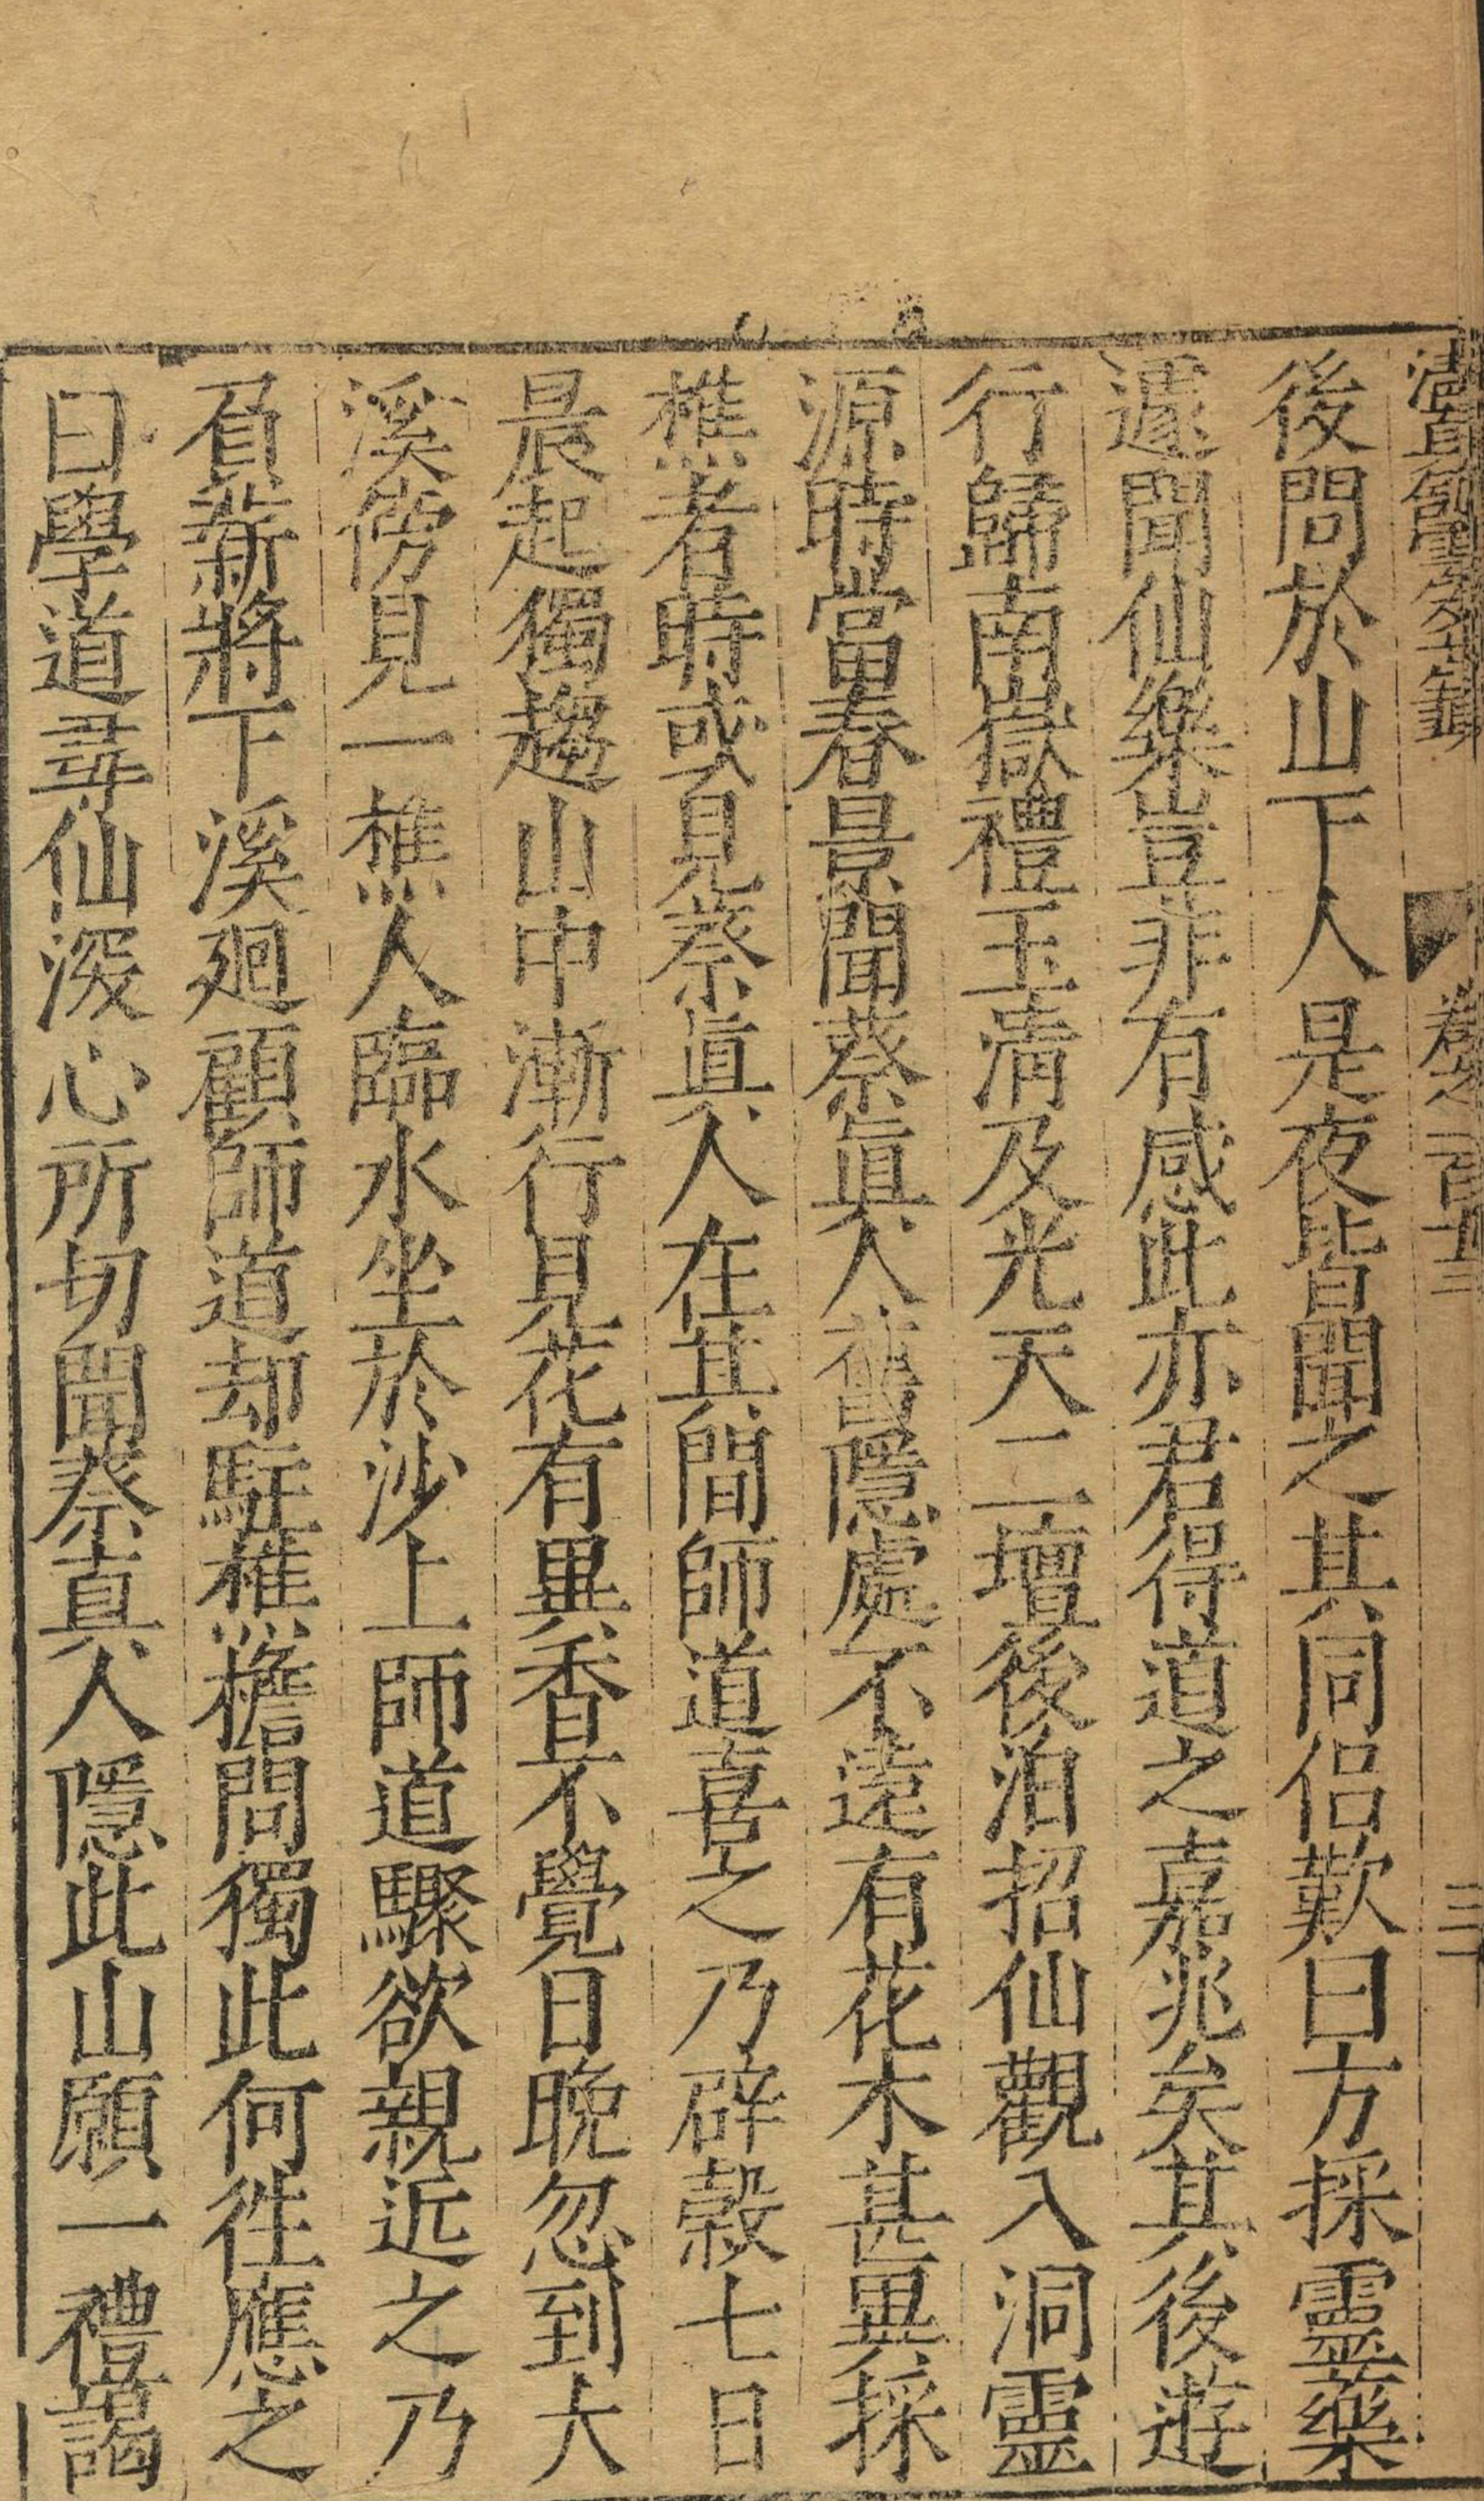 卷之一百十三
三十
後問於山下人是夜皆聞之其同侣歎曰方採靈藥
遽聞仙樂豈非有感此亦君得道之嘉兆矣其後遊
行歸南嶽禮玉清及光天二壇後泊招仙觀入洞靈
源時當春景聞蔡眞人舊隱處不遠有花木甚異採
樵者時或見蔡眞人在其間師道喜之乃辟穀七日
晨起獨趨山中漸行見花有異香不覺日晚忽到大
溪傍見一樵人臨水坐於沙上師道驟欲親近之乃
負薪將下溪廻顧師道却駐樵擔問獨此何徃應之
曰學道尋仙深心所切聞蔡真人隱此山願一禮謁